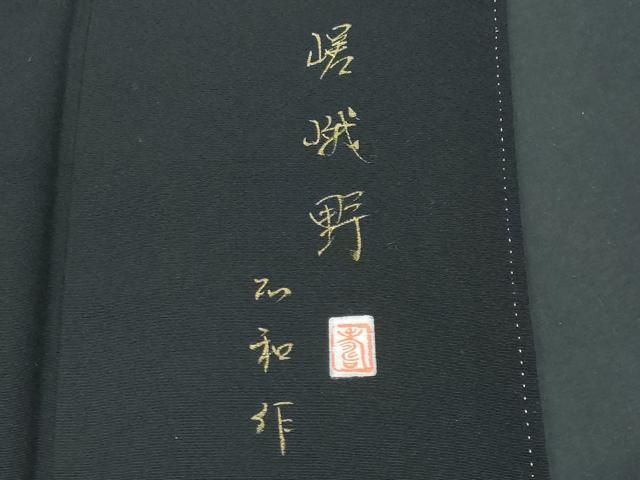 嵯峨野
和作